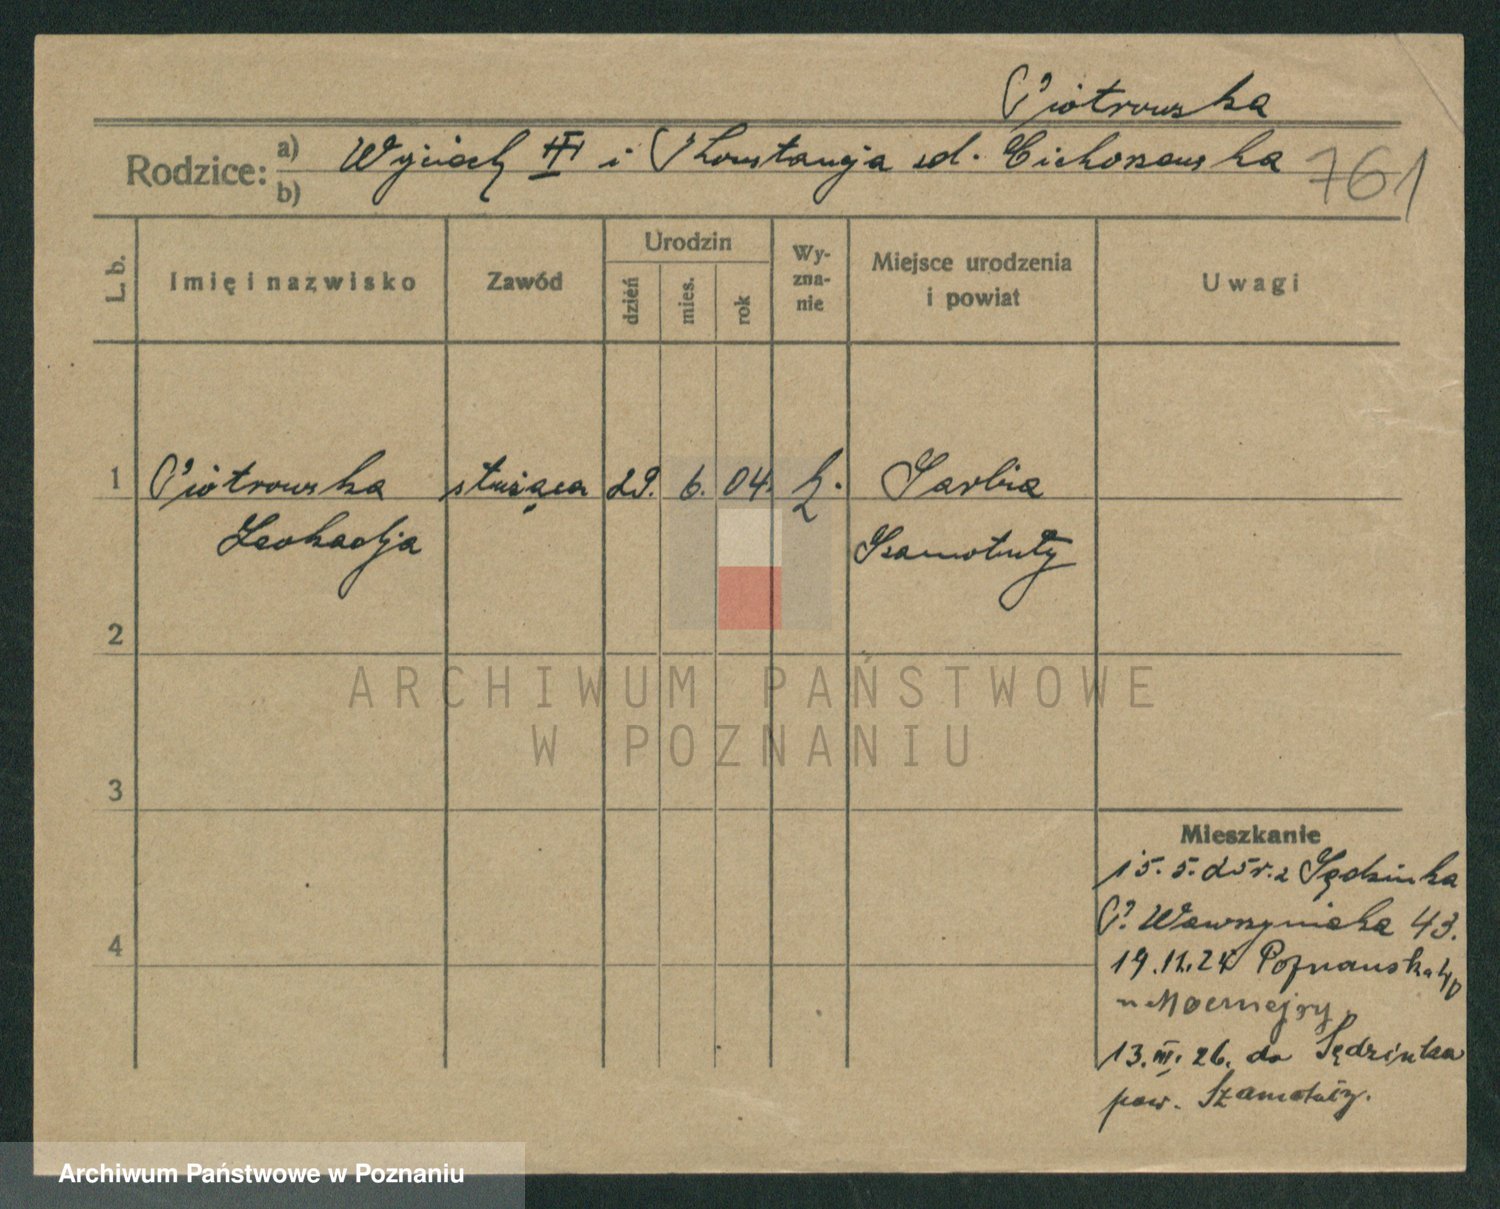 Piotrowska
Rodzice: a) b) Wojciech III i Konstancja zd. Cichoszewska
761
L. b.
Imię i nazwisko
Zawód
Urodzin
dzień
mies.
rok
Wy-
zna-
nie
Miejsce urodzenia
i powiat
Uwagi
1 Piotrowska służąca 29. 6. 04. k. Sarbia
Leokadja Szamotuły
2
3
4
Mieszkanie
15. 5. 25 r. z Sędzinka
P. Wawrzyniaka 43.
19.11.24 Poznańska
13.III.26. do Sędzinka
pow. Szamotuły.
ARCHIWUM PAŃSTWOWE
W POZNANIU
Archiwum Państwowe w Poznaniu